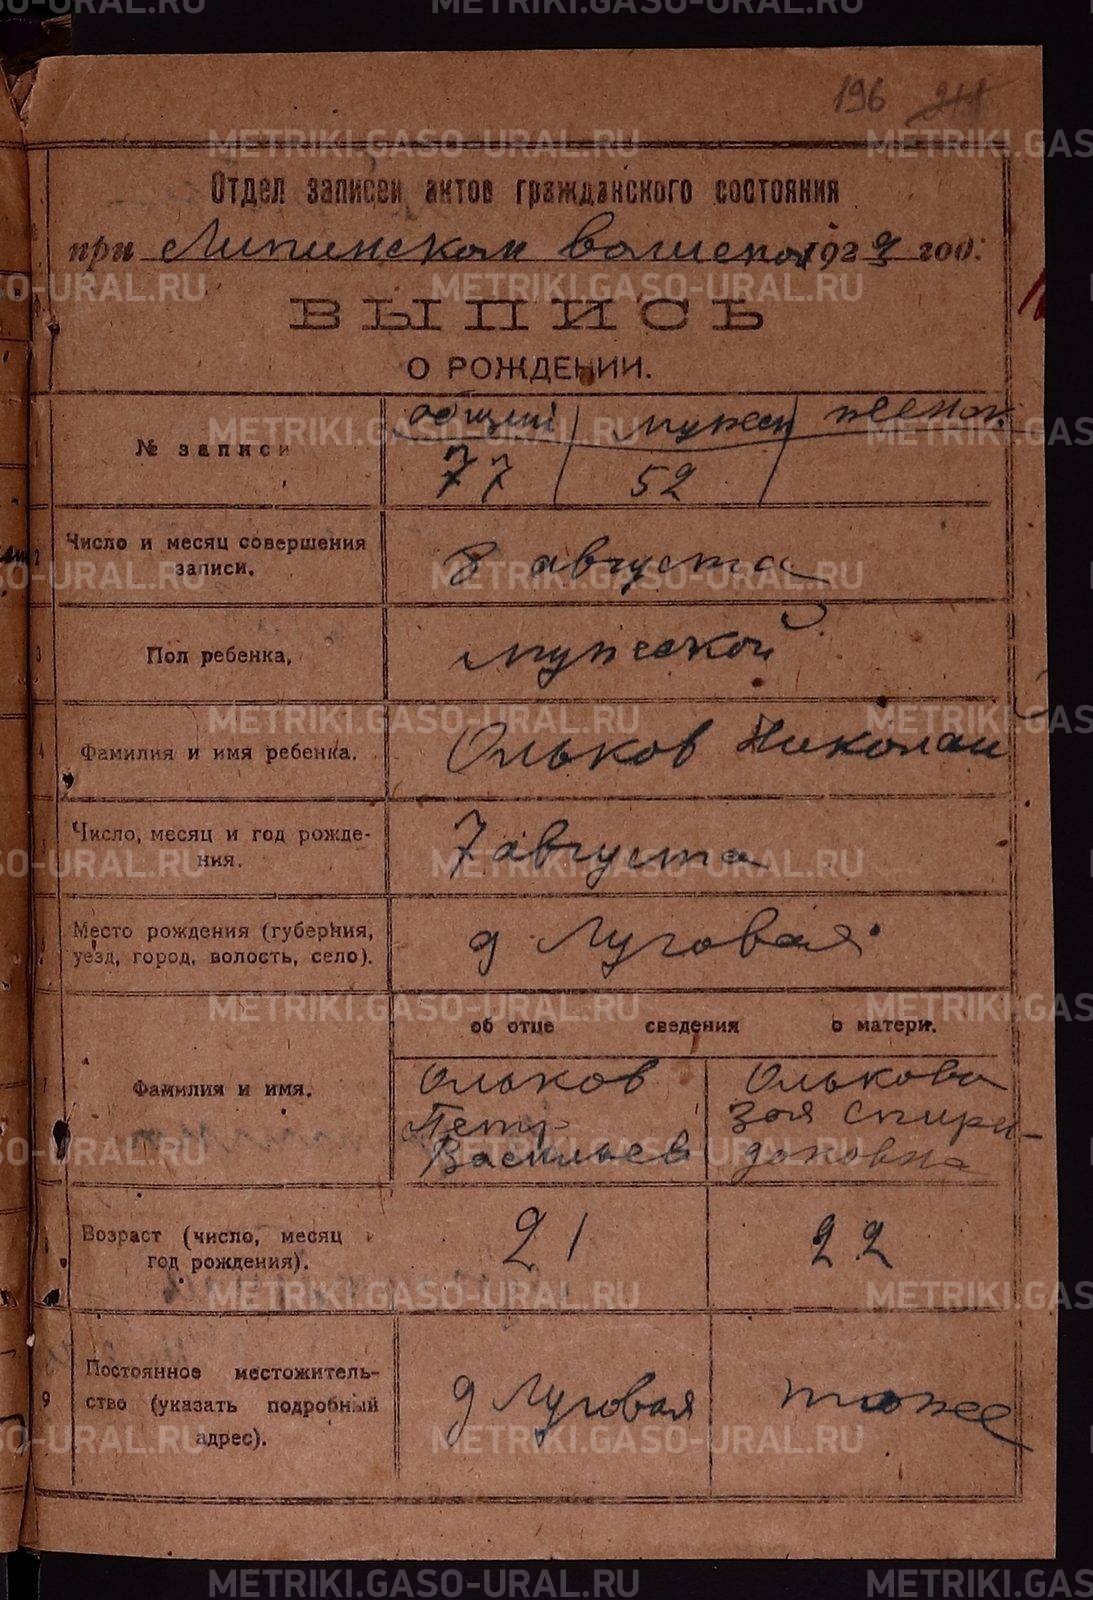 METRIKI.GASO-URAL.RU
196
Отдел записей актов гражданского состояния
при Липинском волиспол 192 год.
ВЫПИСЬ
О РОЖДЕНИИ.
1 № записи общий мужеск женск.
77 52
2 Число и месяц совершения
записи. 8 августа
3 Пол ребенка, мужеской
4 Фамилия и имя ребенка. Ольков Николай
Число, месяц и год рожде-
ния. 7 августа
Место рождения (губерния,
уезд, город, волость, село). д Луговая
об отце сведения о матери.
7 Фамилия и имя. Ольков Петр Васильев Олькова Зоя Спири-
доновна
Возраст (число, месяц и
год рождения). 21 22
9 Постоянное местожитель-
ство (указать подробный
адрес). д Луговая тоже